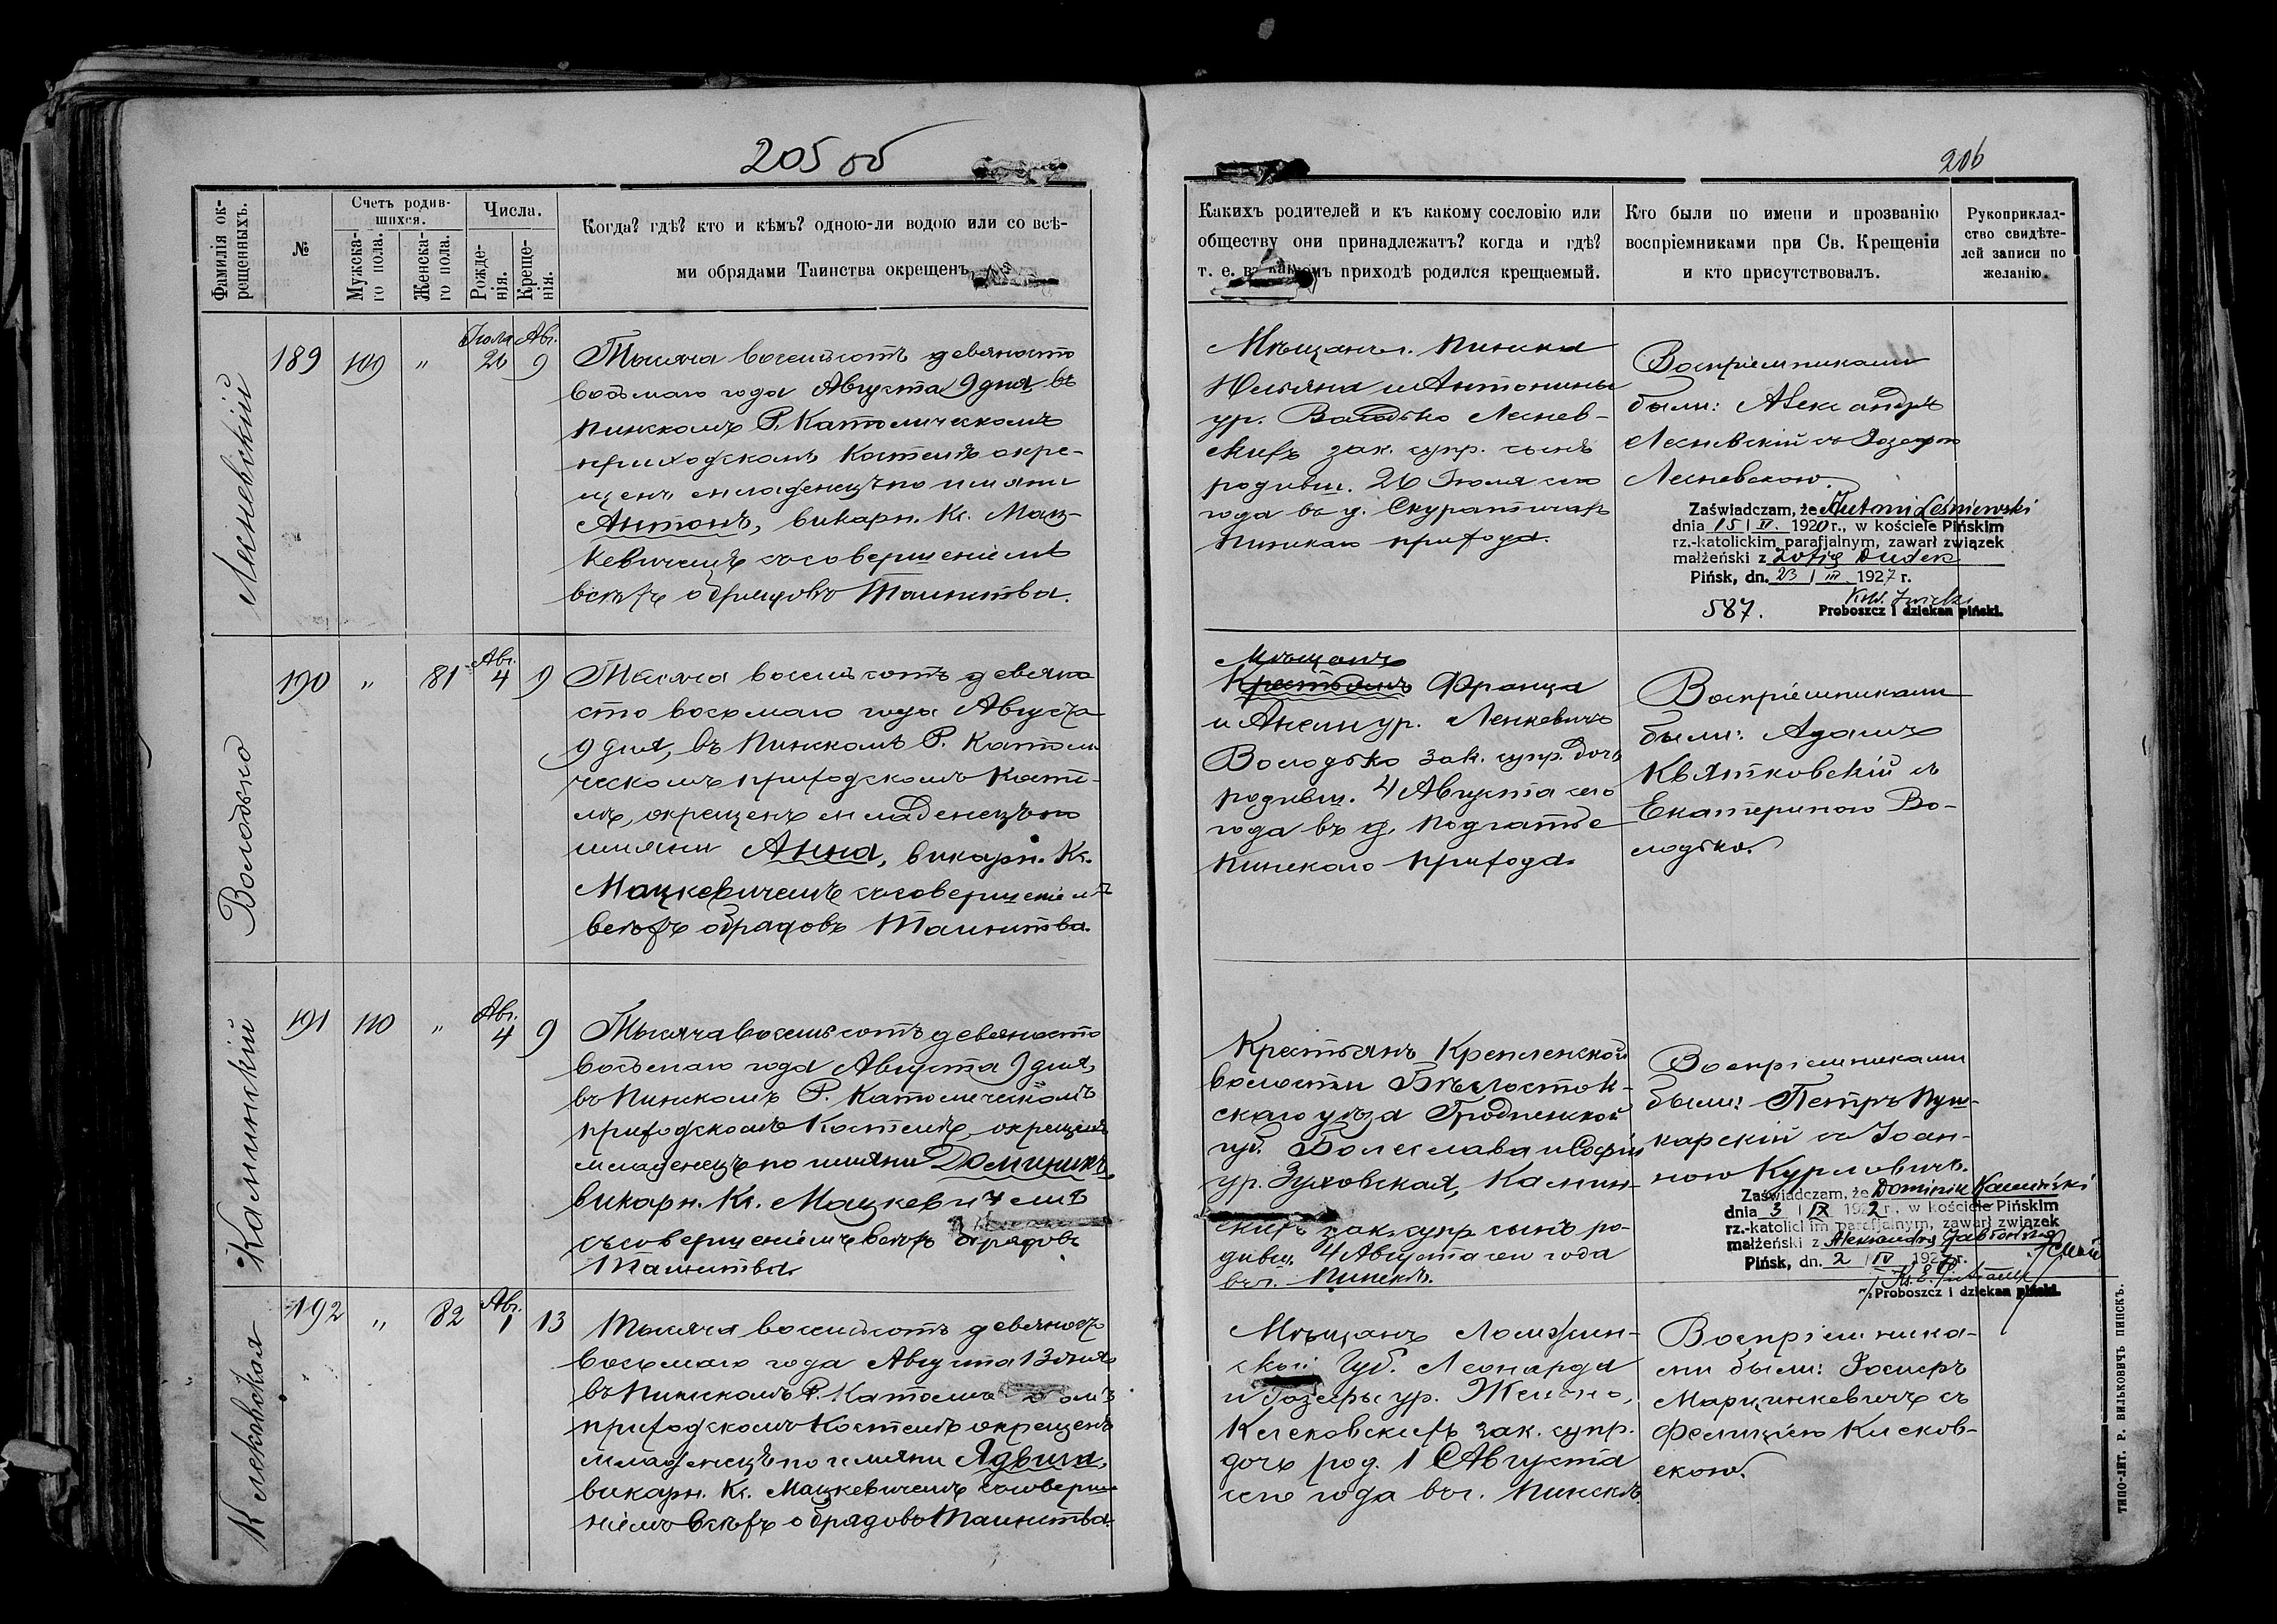 205 об
206
Фамилія ок-
рещенныхъ.
№
Счетъ родив-
шихся.
Мужска-
го пола.
Женска-
го пола.
Числа.
Рожде-
нія.
Креще-
нія.
Когда? гдѣ? кто и кѣмъ? одною-ли водою или со всѣ-
ми обрядами Таинства окрещенъ
Какихъ родителей и къ какому сословію или
обществу они принадлежатъ? когда и гдѣ?
т. е. въ какомъ приходѣ родился крещаемый.
Кто были по имени и прозванію
воспріемниками при Св. Крещеніи
и кто присутствовалъ.
Рукоприклад-
ство свидѣте-
лей записи по
желанію.
Лесневскій
189 109 " Іюля 26 Авг. 9
Тысяча восемьсотъ девяносто
восьмаго года Августа 9 дня въ
Пинскомъ Р. Католическомъ
приходскомъ Костелѣ окре-
щенъ младенецъ по имяни
Антонъ, викарн. Кс. Мац-
кевичемъ съ совершеніемъ
всѣхъ обрядовъ Таинства.
Мѣщанъ г. Пинска
Юльяна и Антонины
ур. Володько Леснев-
скихъ зак. супр. сынъ
родивш. 26 Іюля сего
года въ д. Скуратичахъ
Пинскаго прихода.
Воспріемниками
были: Александръ
Лесневскій съ Іозефою
Лесневскою.
Zaświadczam, że Antoni Leśniewski
dnia 15 / II. 1920 r., w kościele Pińskim
rz.-katolickim parafjalnym, zawarł związek
małżeński z Zofią Dudek
Pińsk, dn. 23 / III 1927 r.
587. Proboszcz i dziekan piński.
Володько
190 " 81 Авг. 4 9
Тысяча восемьсотъ девяно
сто восьмаго года Августа
9 дня, въ Пинскомъ Р. Католи
ческомъ приходскомъ Косте-
лѣ, окрещенъ младенецъ по
имяни Анна, викарн. Кс.
Мацкевичемъ съ совершеніемъ
всѣхъ обрядовъ Таинства.
Мѣщанъ
Крестьянъ Франца
и Анны ур. Ленкевичъ
Володько зак. супр. дочь
родивш. 4 Августа сего
года въ д. Подгатье
Пинскаго прихода.
Воспріемниками
были: Адамъ
Квятковскій съ
Екатериною Во-
лодько.
Каминскій
191 110 " Авг. 4 9
Тысяча восемьсотъ девяносто
восьмаго года Августа 9 дня,
въ Пинскомъ Р. Католическомъ
приходскомъ Костелѣ, окрещенъ
младенецъ по имяни Доминикъ,
викарн. Кс. Мацкевичемъ
съ совершеніемъ всѣхъ обрядовъ
Таинства.
Крестьянъ
волости Бѣлосток-
скаго уѣзда Гродненской
губ. Болеслава и Софіи
ур. Зуховская, Камин-
скихъ зак. супр. сынъ ро-
дивш. 4 Августа сего года
въ г. Пинскѣ.
Воспріемниками
были: Петръ Пуш-
карскій съ Іоан-
ною Курловичъ.
Zaświadczam, że Dominik Kamiński
dnia 3 / IX 192 r., w kościele Pińskim
rz.-katolickim parafjalnym, zawarł związek
małżeński z Aleksandrą
Pińsk, dn. 2 / IV 192 r.
Proboszcz i dziekan piński.
Клековская
192 " 82 Авг. 1 13
Тысяча восемьсотъ девяносто
восьмаго года Августа 13 дня
въ Пинскомъ Р. Католиче омъ
приходскомъ Костелѣ окрещенъ
младенецъ по имяни Ядвига,
викарн. Кс. Мацкевичемъ съ соверше
ніемъ всѣхъ обрядовъ Таинства.
Мѣщанъ Ломжин-
ской Губ. Леонарда
и Іозефы ур.
Клековскихъ зак. супр.
дочь род. 1 Августа
сего года въ г. Пинскѣ.
Воспріемника-
ми были: Іосифъ
Марцинкевичъ съ
ФелиціеюКлеков-
скою.
ТИПО-ЛИТ. Р. ВИЛЬКОВИЧЪ ПИНСКЪ.